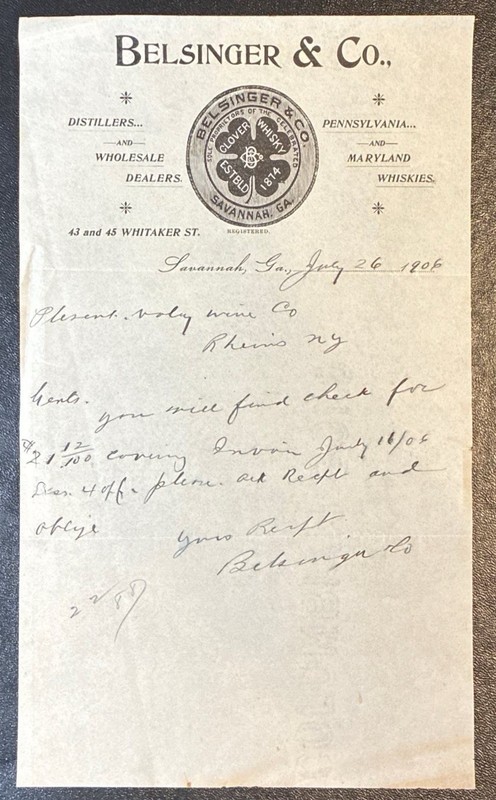 BELSINGER & CO.,
DISTILLERS...
AND
WHOLESALE
DEALERS.
BELSINGER & CO.
SOLE PROPRIETORS OF THE CELEBRATED
CLOVER WHISKY
B & Co
ESTBLD 1874
SAVANNAH, GA.
REGISTERED.
PENNSYLVANIA...
AND
MARYLAND
WHISKIES.
43 and 45 WHITAKER ST.
Savannah, Ga., July 26 1906
Plesent Valey wine Co
Rheims NY
Gents.
you will find check for
$21 12/100 covering Invoice July 16/06
Less 4 off. please ack Recpt and
oblige
Yours Respt
Belsinger Co